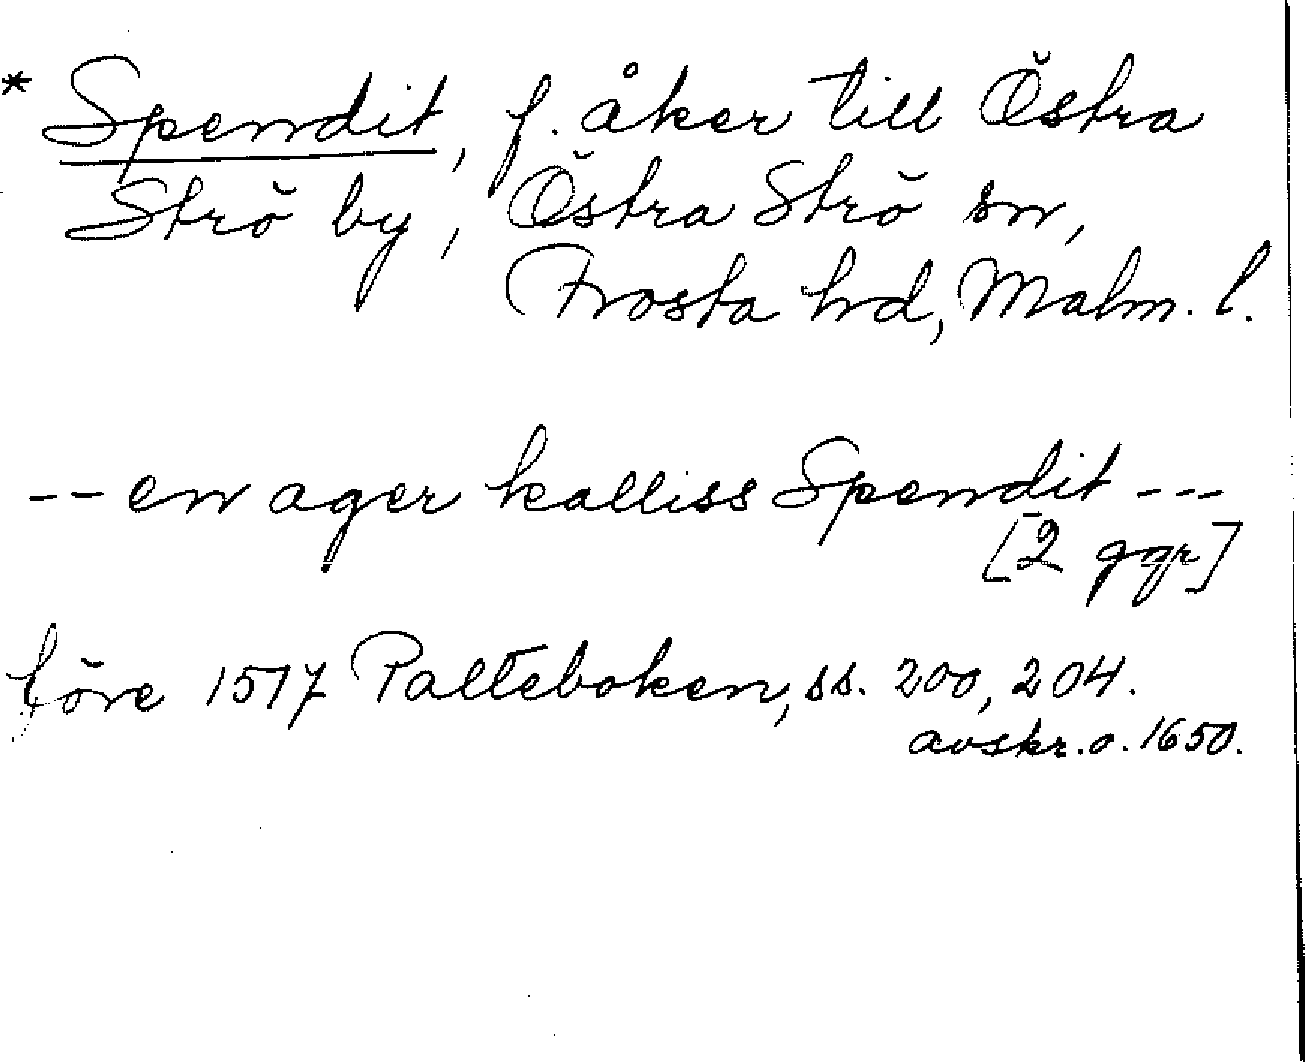 * Spendit, f. åker till Östra
Strö by, Östra Strö sn,
Frosta hd, Malm. l.
-- en ager kalliss Spendit ---
[2 ggr]
före 1517 Palteboken, ss. 200, 204.
avskr. o. 1650.